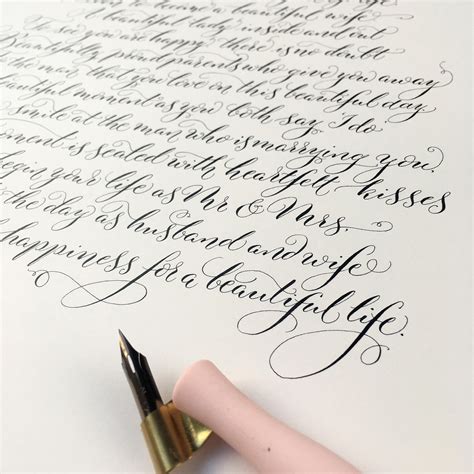 become a beautiful wife
beautiful lady inside and out
To see you are happy there is no doubt
Beautifully proud parents who give you away
the man that you love on this beautiful day.
beautiful moment as you both say 'I do'
smile at the man who is marrying you.
moment is sealed with heartfelt kisses
begin your life as Mr & Mrs.
the day as husband and wife
happiness for a beautiful life.